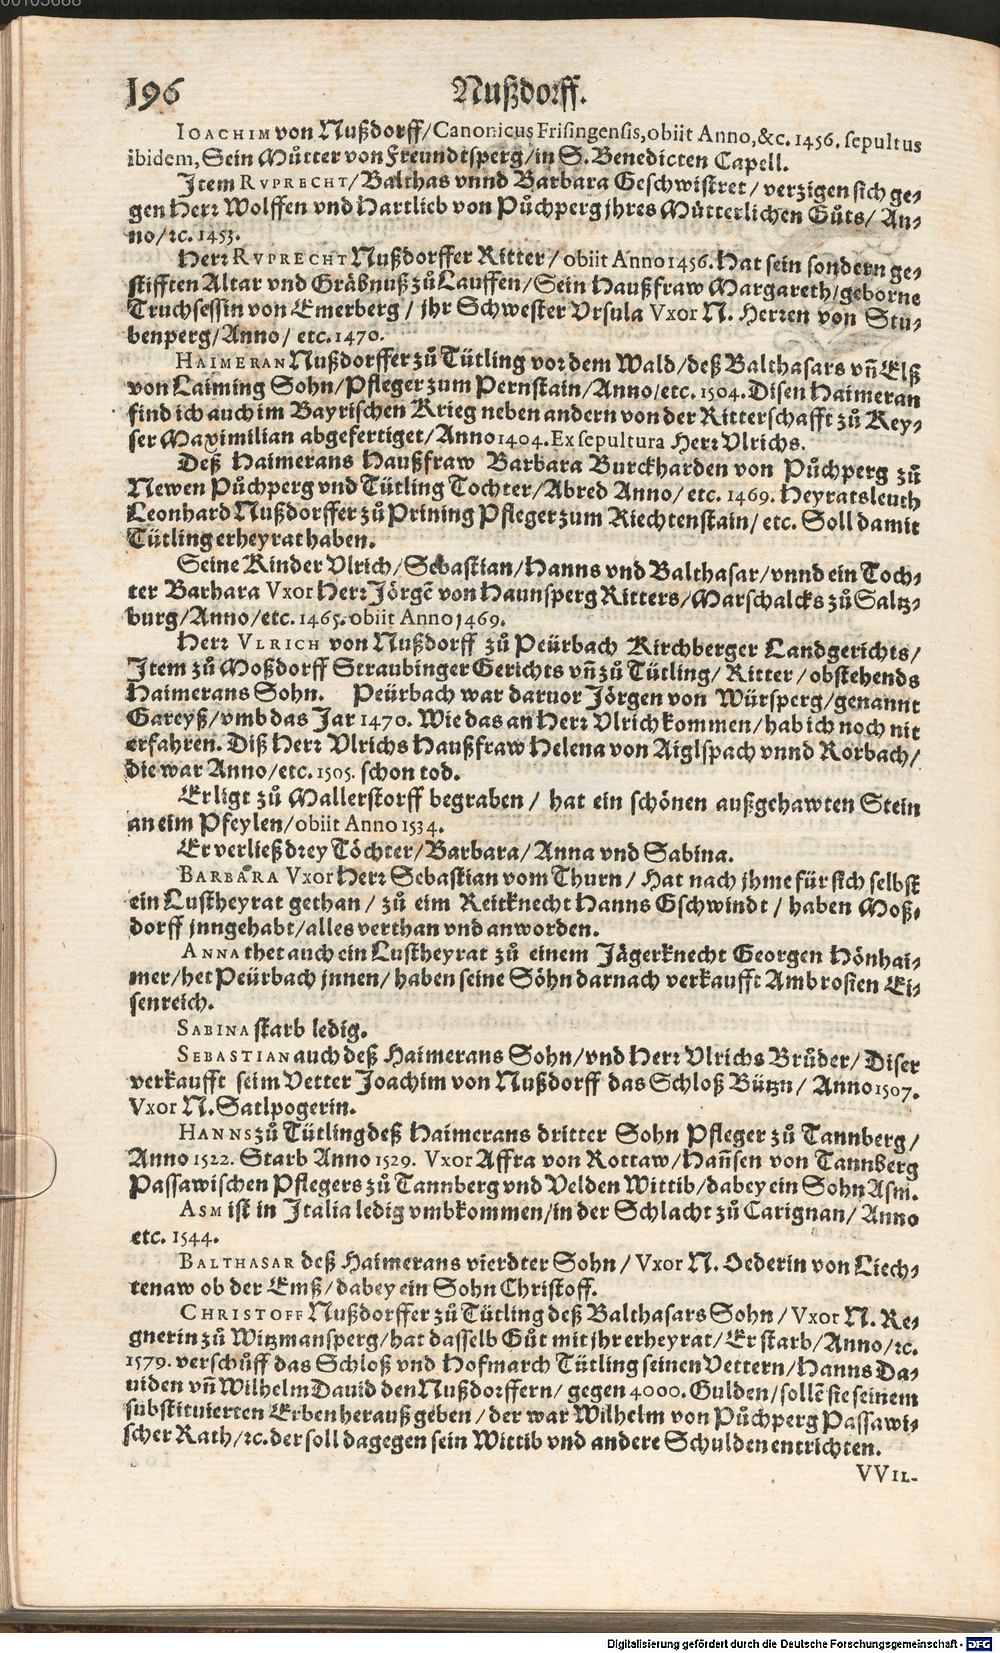 196 Nußdorff.
IOACHIM von Nußdorff/Canonicus Frisingensis, obiit Anno, &c. 1456. sepultus
ibidem, Sein Můtter von Freundtsperg/in S. Benedicten Capell.
Item RVPRECHT/Balthas vnnd Barbara Geschwistret/verzigen sich ge-
gen Herr Wolffen vnd Hartlieb von Půchperg jhres Můtterlichen Gůts/An-
no/ꝛc. 1453.
Herr RVPRECHT Nußdorffer Ritter/obiit Anno 1456. Hat sein sondern ge-
stifften Altar vnd Gräbnuß zů Lauffen/Sein Haußfraw Margareth/geborne
Truchsessin von Emerberg/jhr Schwester Vrsula Vxor N. Herren von Stu-
benperg/Anno/etc. 1470.
HAIMERAN Nußdorffer zů Tütling vor dem Wald/deß Balthasars vñ Elß
von Laiming Sohn/Pfleger zum Pernstain/Anno/etc. 1504. Disen Haimeran
find ich auch im Bayrischen Krieg neben andern von der Ritterschafft zů Key-
ser Maximilian abgefertiget/Anno 1404. Ex sepultura Herr Vlrichs.
Deß Haimerans Haußfraw Barbara Burckharden von Půchperg zů
Newen Půchperg vnd Tütling Tochter/Abred Anno/etc. 1469. Heyratsleuth
Leonhard Nußdorffer zů Prining Pfleger zum Riechtenstain/etc. Soll damit
Tütling erheyrat haben.
Seine Kinder Vlrich/Sebastian/Hanns vnd Balthasar/vnnd ein Toch-
ter Barbara Vxor Herr Jörgẽ von Haunsperg Ritters/Marschalcks zů Saltz-
burg/Anno/etc. 1465. obiit Anno 1469.
Herr VLRICH von Nußdorff zů Peürbach Kirchberger Landgerichts/
Item zů Moßdorff Straubinger Gerichts vñ zů Tütling/Ritter/obstehends
Haimerans Sohn. Peürbach war daruor Jörgen von Würsperg/genannt
Gareyß/vmb das Jar 1470. Wie das an Herr Vlrich kommen/hab ich noch nit
erfahren. Diß Herr Vlrichs Haußfraw Helena von Aiglspach vnnd Rorbach/
die war Anno/etc. 1505. schon tod.
Er ligt zů Mallerstorff begraben/hat ein schönen außgehawten Stein
an eim Pfeylen/obiit Anno 1534.
Er verließ drey Töchter/Barbara/Anna vnd Sabina.
BARBARA Vxor Herr Sebastian vom Thurn/Hat nach jhme für sich selbst
ein Lustheyrat gethan/zů eim Reitknecht Hanns Gschwindt/haben Moß-
dorff jnngehabt/alles verthan vnd anworden.
ANNA thet auch ein Lustheyrat zů einem Jägerknecht Georgen Hönhai-
mer/het Peürbach jnnen/haben seine Söhn darnach verkaufft Ambrosien Ei-
senreich.
SABINA starb ledig.
SEBASTIAN auch deß Haimerans Sohn/vnd Herr Vlrichs Brůder/Diser
verkaufft seim Vetter Joachim von Nußdorff das Schloß Bützn/Anno 1507.
Vxor N. Satlpogerin.
HANNS zů Tütling deß Haimerans dritter Sohn Pfleger zů Tannberg/
Anno 1522. Starb Anno 1529. Vxor Affra von Rottaw/Hañsen von Tannberg
Passawischen Pflegers zů Tannberg vnd Velden Wittib/dabey ein Sohn Asm.
ASM ist in Italia ledig vmbkommen/in der Schlacht zů Carignan/Anno
etc. 1544.
BALTHASAR deß Haimerans vierdter Sohn/Vxor N. Oederin von Liech-
tenaw ob der Emß/dabey ein Sohn Christoff.
CHRISTOFF Nußdorffer zů Tütling deß Balthasars Sohn/Vxor N. Re-
gnerin zů Witzmansperg/hat dasselb Gůt mit jhr erheyrat/Er starb/Anno/ꝛc.
1579. verschůff das Schloß vnd Hofmarch Tütling seinen Vettern/Hanns Da-
uiden vñ Wilhelm Dauid den Nußdorffern/gegen 4000. Gulden/sollẽ sie seinem
substituierten Erben herauß geben/der war Wilhelm von Půchperg Passawi-
scher Rath/ꝛc. der soll dagegen sein Wittib vnd andere Schulden entrichten.
VVIL-
Digitalisierung gefördert durch die Deutsche Forschungsgemeinschaft - DFG